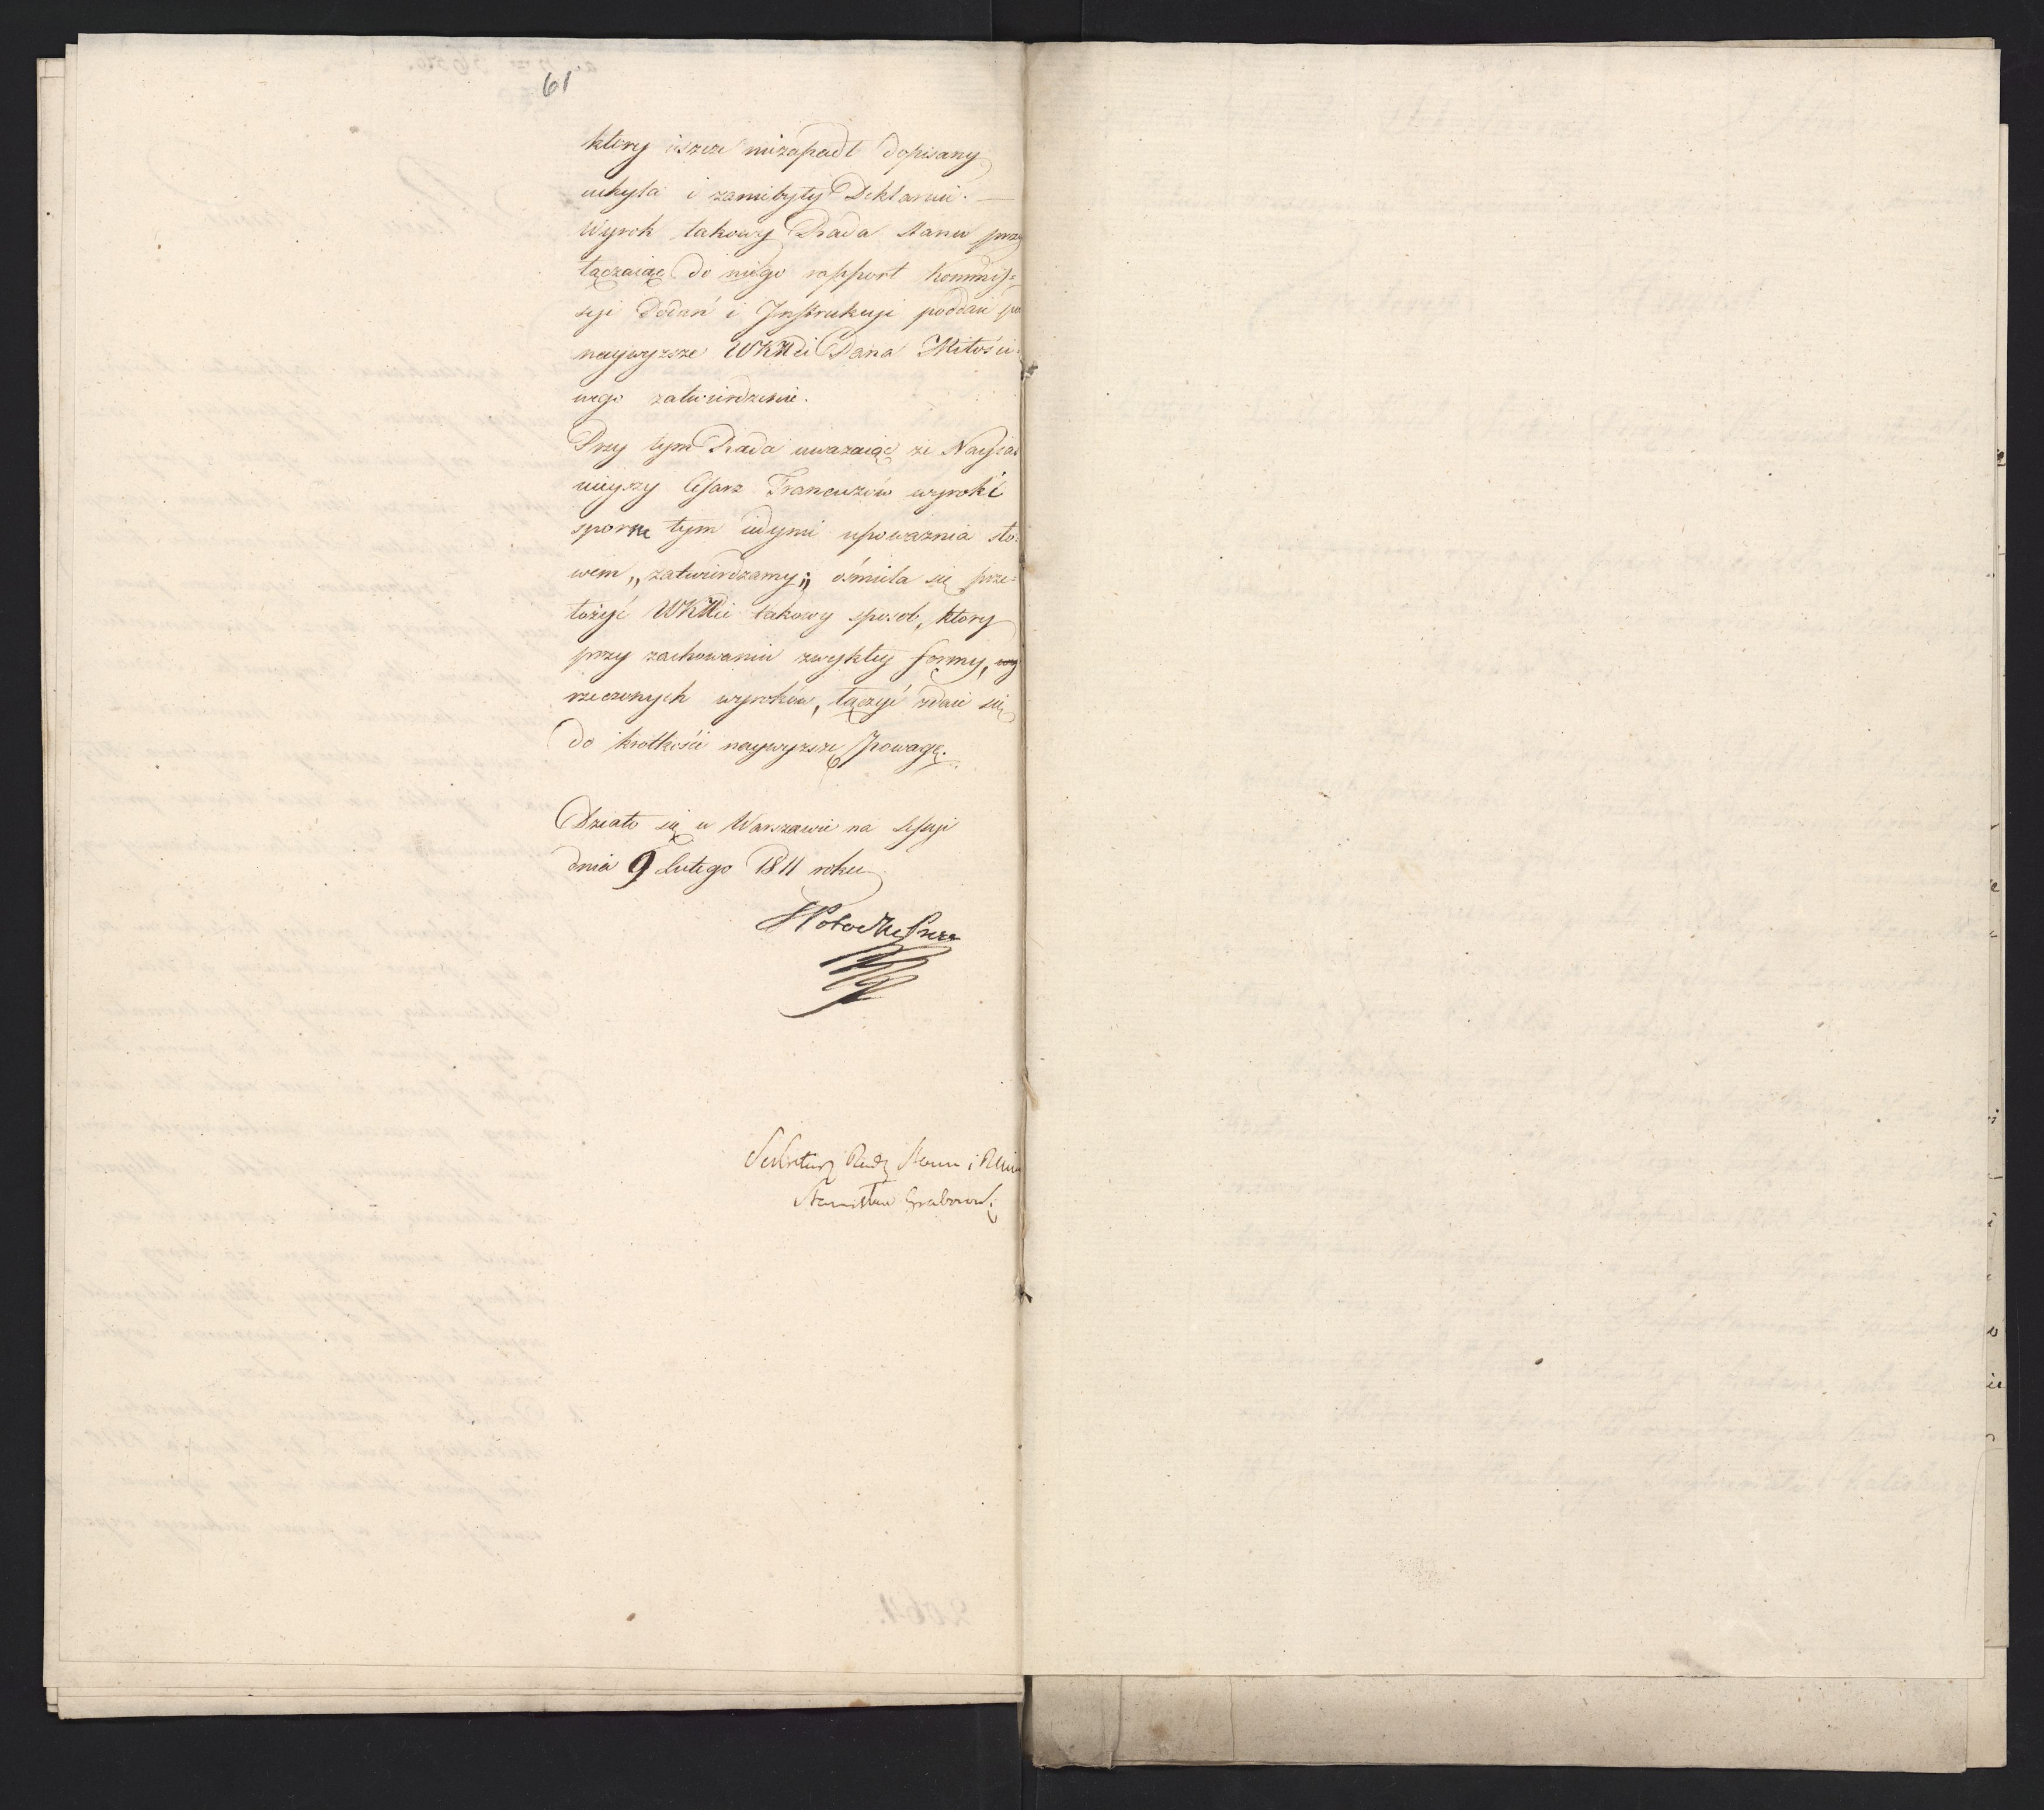 61
ktory ieszcze niezapadł dopisany
uchyla i zaniebyły Deklaruie. —
Wyrok takowy Rada Stanu przy
łączaiąc do niego rapport kommis=
syi Podań i Instrukcyi poddaie po
naywyższe WKMci Pana Miłości=
wego zatwierdzenie.
Przy tym Rada uważaiąc że Nayia
 snieyszy Cesarz Francuzów wyroki
sporne tym iedynie upoważnia sło=
wem „zatwierdzamy" ośmiela się prze=
łożyć WKMci takowy sposob, ktory
przy zachowaniu zwykłey formy, wy
rzeczonych wyroków, łączyć zdaie się
do krotkości naywyższą powagę.
Działo się w Warszawie na Sessyi
dnia 9 Lutego 1811 roku
Potocki Prez
Sekretarz Rady Stanu i
Stanisław Grabowski